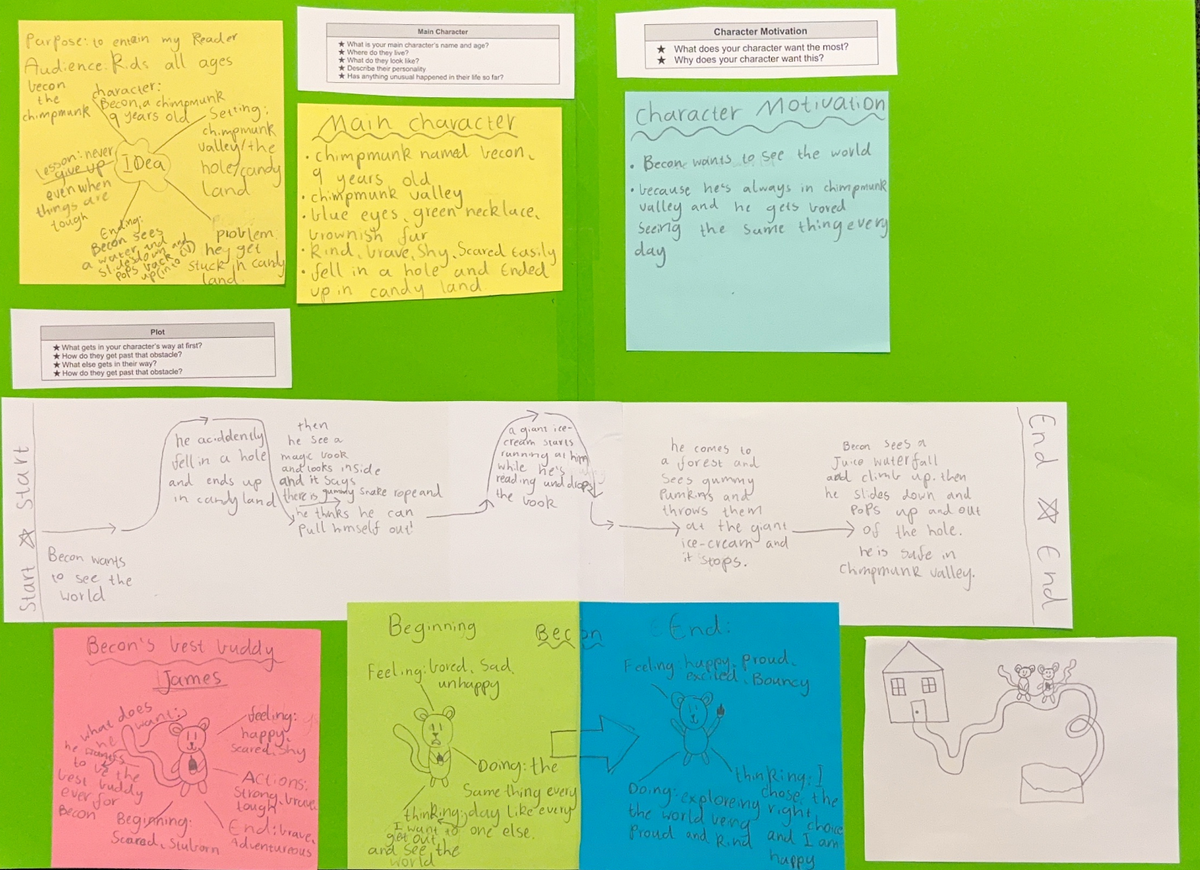 Purpose: to entain my Reader
Audience: Kids all ages
becon
the
chimpmunk
character:
Becon, a chimpmunk
9 years old
Setting:
chimpmunk
valley/the
hole/candy
land
IDea
lesson: never
give up
even when
things are
tough
Ending:
Becon sees
a water, and
slides down and
pops back
up
problem
he get
stuck in candy
land.
Main Character
★ What is your main character's name and age?
★ Where do they live?
★ What do they look like?
★ Describe their personality
★ Has anything unusual happened in their life so far?
Main character
• chimpmunk named becon.
9 years old
• chimpmunk valley
• blue eyes, green necklace,
brownish fur
• Kind, brave, Shy, Scared Easily
• fell in a hole and Ended
up in candy land
Character Motivation
★ What does your character want the most?
★ Why does your character want this?
Character Motivation
• Becon wants to see the world
• because he's always in chimpmunk
valley and he gets bored
seeing the same thing every
day
Plot
★ What gets in your character's way at first?
★ How do they get past that obstacle?
★ What else gets in their way?
★ How do they get past that obstacle?
Start ☆ Start
Becon wants
to see the
world
he aciddently
fell in a hole
and ends up
in candy land
then
he see a
magic book
and looks inside
and it says
there is gummy snake rope and
he thinks he can
pull himself out!
a giant ice-
cream starts
running at him
while he's
reading and drops
the book
he comes to
a forest and
sees gummy
Pumkins and
throws them
at the giant
ice-cream and
it stops.
Becon sees a
Juice waterfall
and climb up. then
he slides down and
Pops up and out
of the hole.
he is safe in
Chimpmunk valley.
End ☆ End
Becon's best buddy
James
what does
he want:
he wants
to be the
best buddy
ever for
Becon
feeling:
happy,
scared, shy
Actions:
Strong, brave,
tough
Beginning:
Scared, Stuborn
End: brave,
Adventureous
Beginning
Feeling: bored, Sad,
unhappy
Doing: the
Same thing every
day like every
one else.
thinking:
I want to
get out
and see the
world
Becon
End:
Feeling happy, Proud,
excited, Bouncy
Doing: exploreing
the world being
Proud and kind
thinking: I
chose the
right choice
and I am
happy